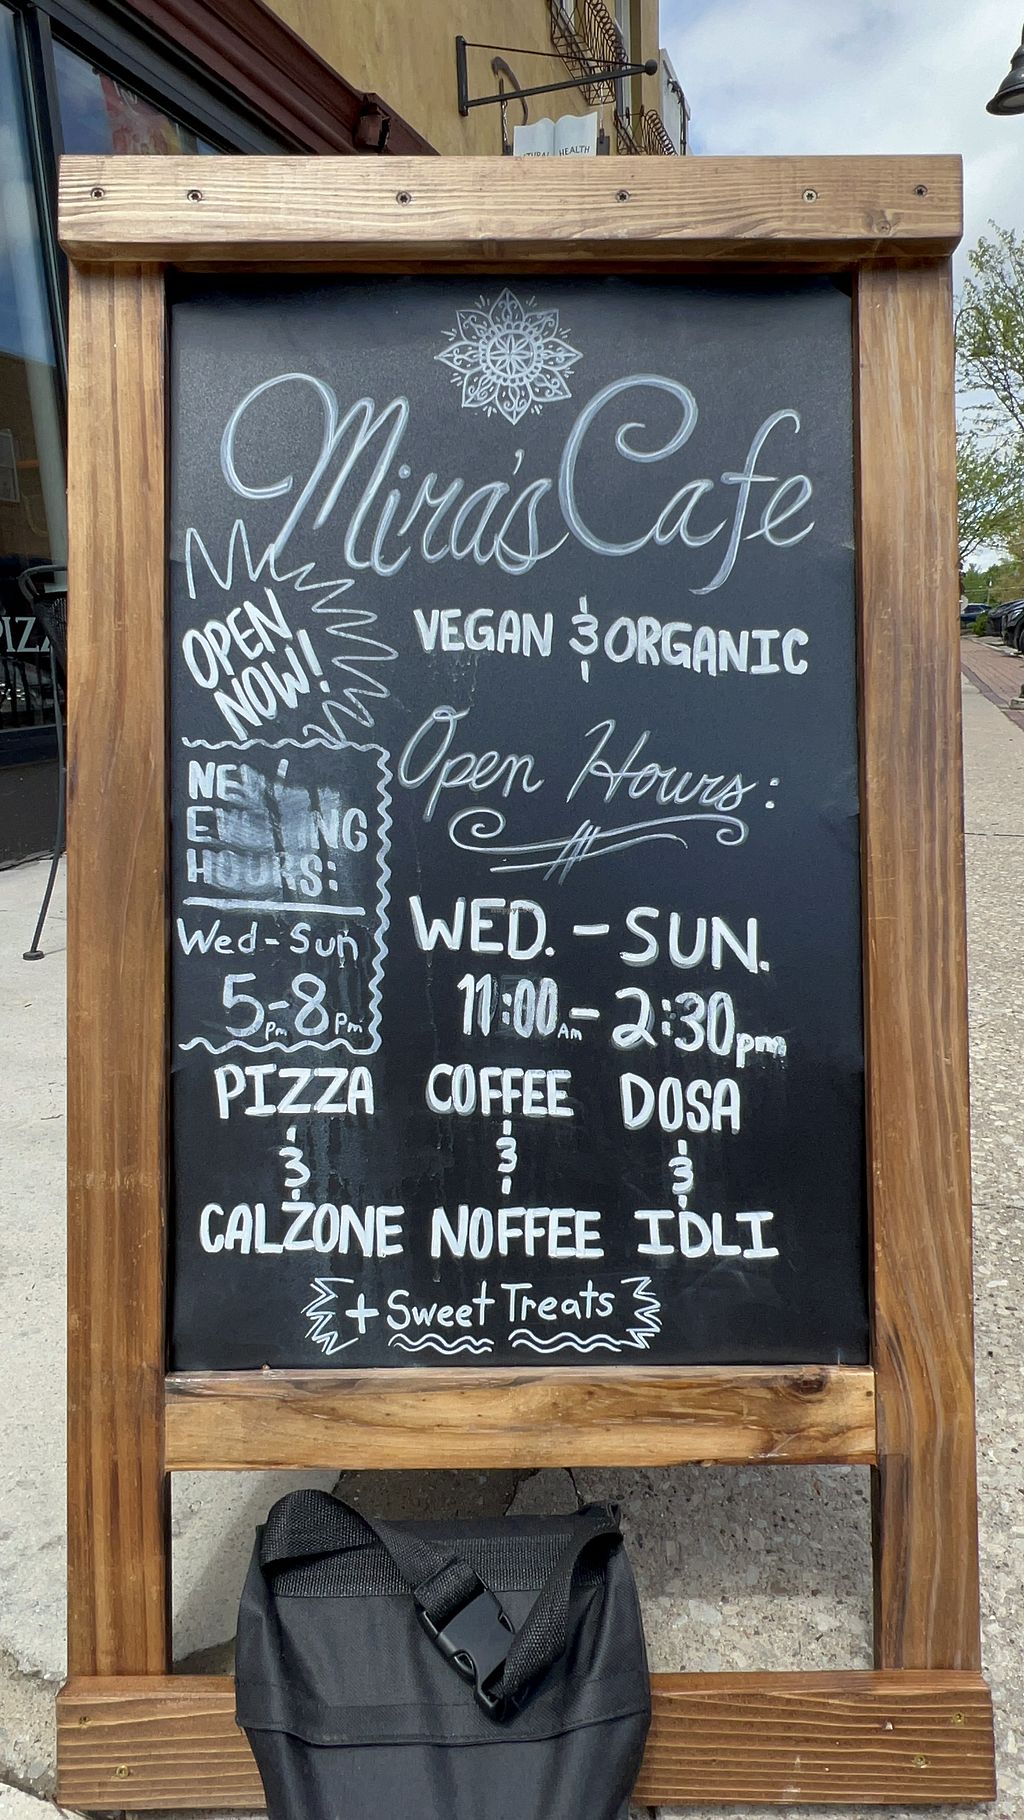 NATURAL HEALTH
Mira's Cafe
VEGAN & ORGANIC
OPEN
NOW!
Open Hours:
NEW
EVENING
HOURS:
Wed-Sun
5pm-8pm
WED. - SUN.
11:00AM - 2:30pm
PIZZA
&
CALZONE
COFFEE
&
NOFFEE
DOSA
&
IDLI
+ Sweet Treats
PIZZ